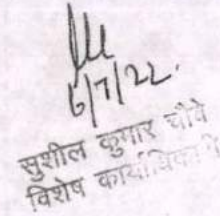 6/7/22.
सुशील कुमार चौबे
विशेष कार्याधिकारी